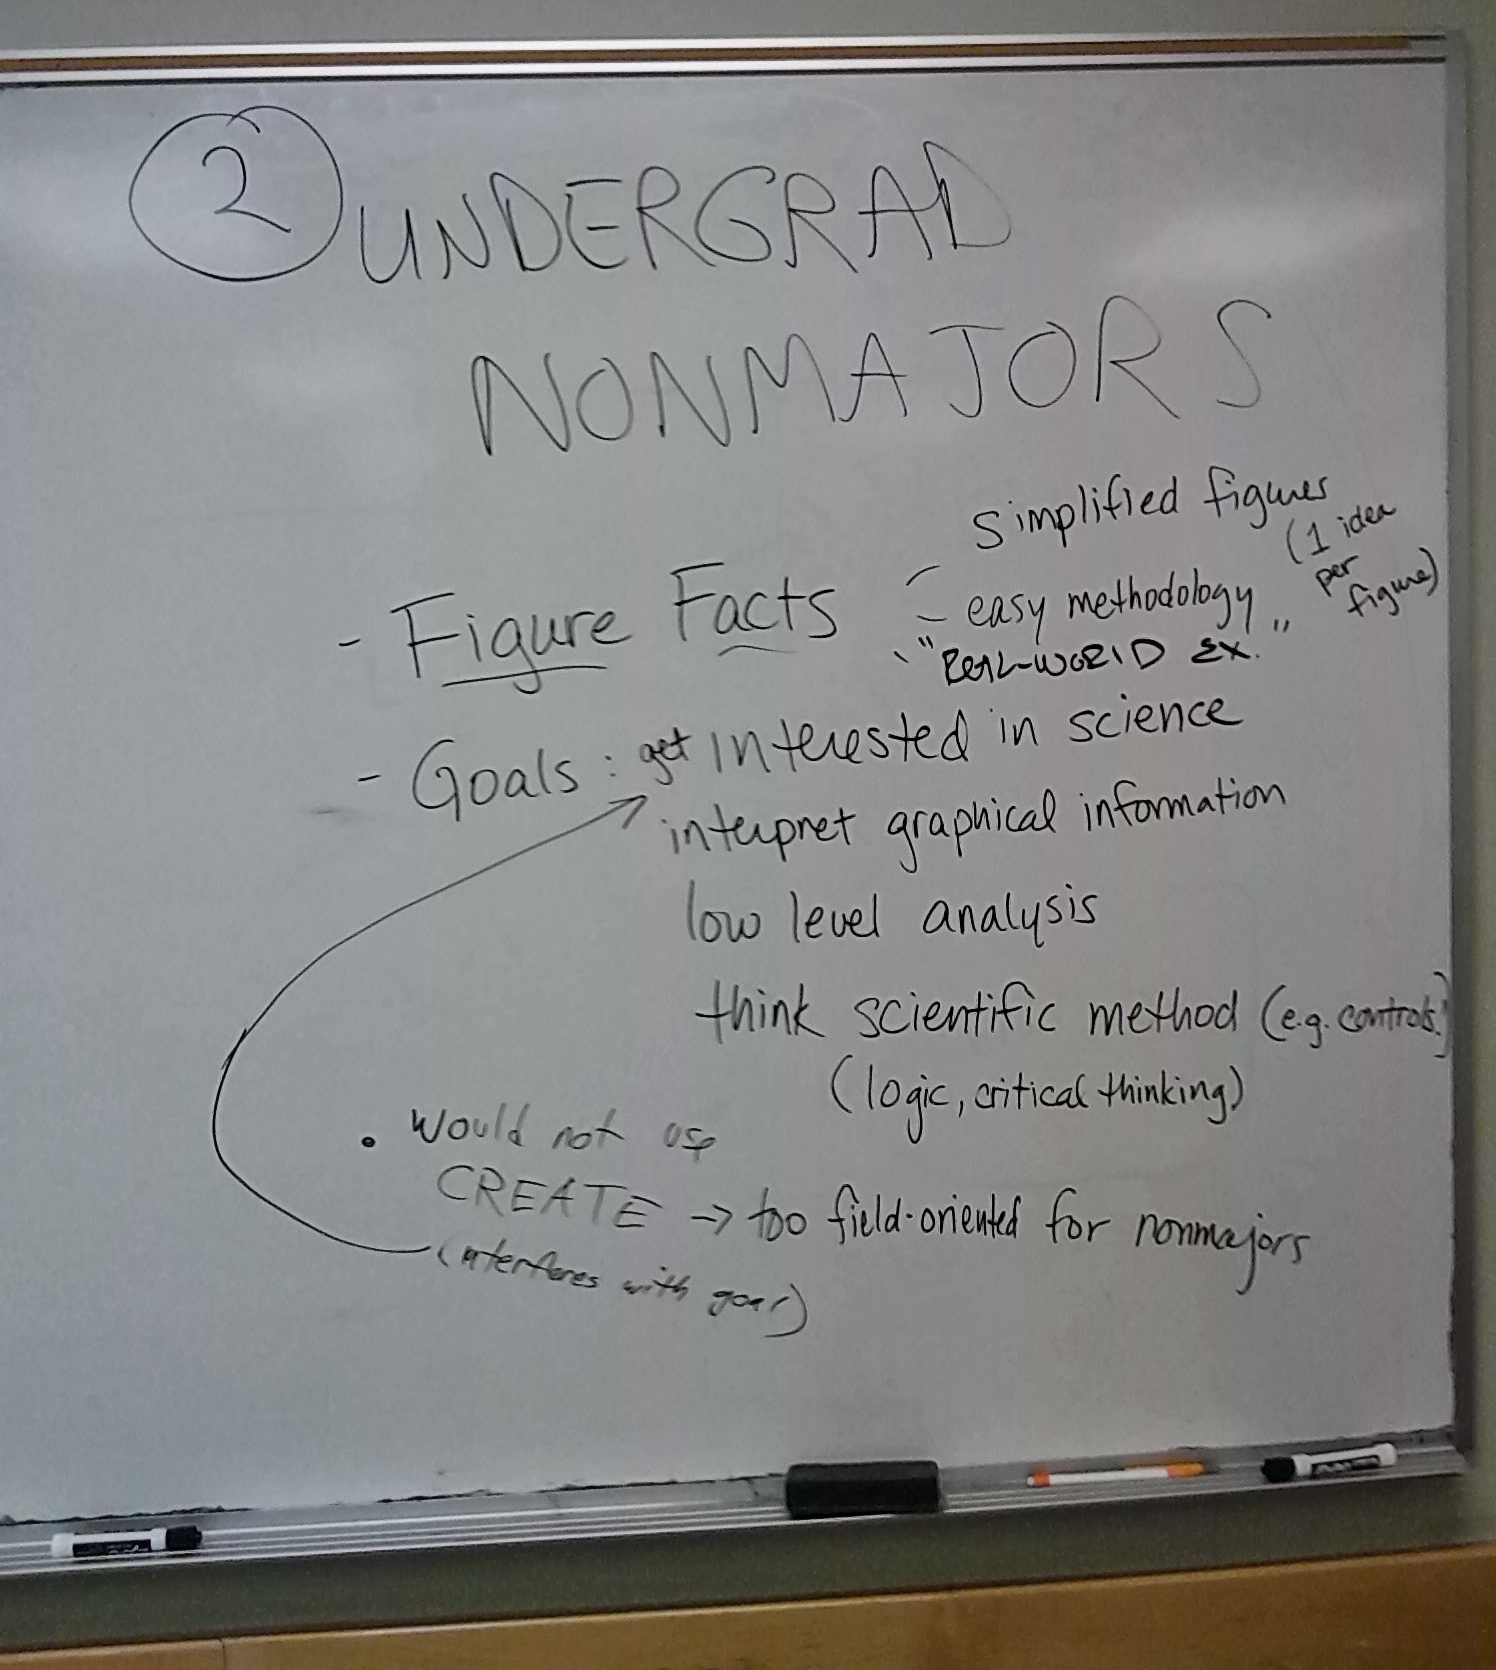 2 UNDERGRAD
NONMAJORS
- Figure Facts
simplified figures
(1 idea
per
figure)
- easy methodology
"REAL-WORLD EX."
- Goals: get interested in science
interpret graphical information
low level analysis
think scientific method (e.g. controls)
(logic, critical thinking)
• would not use
CREATE → too field-oriented for nonmajors
(interferes with goal)